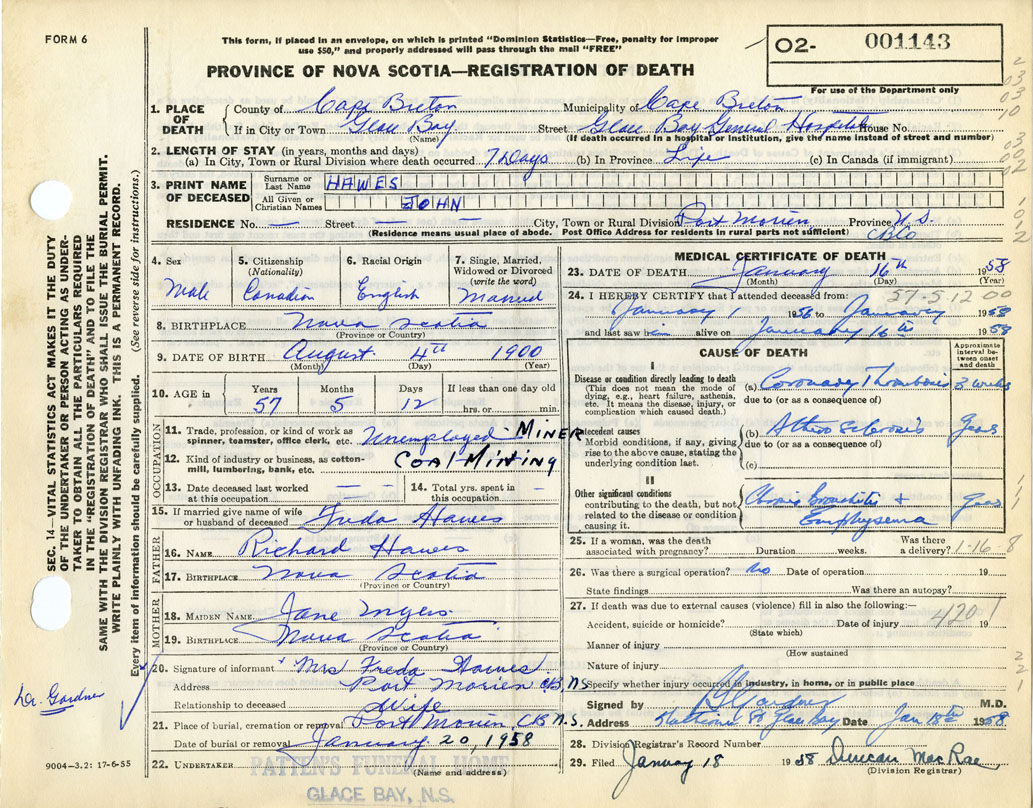 FORM 6
This form, if placed in an envelope, on which is printed "Dominion Statistics—Free, penalty for improper
use $50," and properly addressed will pass through the mail "FREE"
02- 001143
For use of the Department only
PROVINCE OF NOVA SCOTIA—REGISTRATION OF DEATH
SEC. 14—VITAL STATISTICS ACT MAKES IT THE DUTY
OF THE UNDERTAKER OR PERSON ACTING AS UNDER-
TAKER TO OBTAIN ALL THE PARTICULARS REQUIRED
IN THE "REGISTRATION OF DEATH" AND TO FILE THE
SAME WITH THE DIVISION REGISTRAR WHO SHALL ISSUE THE BURIAL PERMIT.
WRITE PLAINLY WITH UNFADING INK. THIS IS A PERMANENT RECORD.
Every item of information should be carefully supplied. (See reverse side for instructions.)
1. PLACE OF DEATH
County of Cape Breton Municipality of Cape Breton
If in City or Town Glace Bay Street Glace Bay General Hospital House No.
(Name) (If death occurred in a hospital or institution, give the name instead of street and number)
2. LENGTH OF STAY (in years, months and days)
(a) In City, Town or Rural Division where death occurred 7 Days (b) In Province Life (c) In Canada (if immigrant)
3. PRINT NAME OF DECEASED
Surname or Last Name HAWES
All Given or Christian Names JOHN
RESIDENCE No. — Street — — City, Town or Rural Division Port Morien Province N.S.
(Residence means usual place of abode. Post Office Address for residents in rural parts not sufficient) CBCo
4. Sex Male
5. Citizenship (Nationality) Canadian
6. Racial Origin English
7. Single, Married, Widowed or Divorced (write the word) Married
8. BIRTHPLACE Nova Scotia
(Province or Country)
9. DATE OF BIRTH August 4th 1900
(Month) (Day) (Year)
10. AGE in Years 57 Months 5 Days 12 If less than one day old hrs. or min.
OCCUPATION
11. Trade, profession, or kind of work as spinner, teamster, office clerk, etc. Unemployed MINER
12. Kind of industry or business, as cotton-mill, lumbering, bank, etc. COAL MINING
13. Date deceased last worked at this occupation — —
14. Total yrs. spent in this occupation —
15. If married give name of wife or husband of deceased Freda Hawes
FATHER
16. NAME Richard Hawes
17. BIRTHPLACE Nova Scotia
(Province or Country)
MOTHER
18. MAIDEN NAME Jane Myers
19. BIRTHPLACE Nova Scotia
(Province or Country)
20. Signature of informant Mrs Freda Hawes
Address Port Morien C.B. NS
Relationship to deceased Wife
21. Place of burial, cremation or removal Port Morien, C.B N.S.
Date of burial or removal January 20, 1958
22. UNDERTAKER PATTEN'S FUNERAL HOME
(Name and address)
GLACE BAY, N.S.
Dr. Gardner
9004-3.2: 17-6-55
MEDICAL CERTIFICATE OF DEATH
23. DATE OF DEATH January 16th 1958
(Month) (Day) (Year)
57-5 12 00
24. I HEREBY CERTIFY that I attended deceased from:
January 1 1956 to January 1958
and last saw him alive on January 16th 1958
CAUSE OF DEATH
Approximate interval between onset and death
I
Disease or condition directly leading to death
(This does not mean the mode of dying, e.g., heart failure, asthenia, etc. It means the disease, injury, or complication which caused death.)
(a) Coronary Thrombosis 2 weeks
due to (or as a consequence of)
Antecedent causes
Morbid conditions, if any, giving rise to the above cause, stating the underlying condition last.
(b) Athero Sclerosis Years
due to (or as a consequence of)
(c)
II
Other significant conditions
contributing to the death, but not related to the disease or condition causing it.
Chronic Bronchitis + Emphysema Years
25. If a woman, was the death associated with pregnancy? Duration weeks. Was there a delivery? 1-16 8
26. Was there a surgical operation? No Date of operation 19
State findings Was there an autopsy?
27. If death was due to external causes (violence) fill in also the following:—
Accident, suicide or homicide? Date of injury 19
(State which) 420 1
Manner of injury
(How sustained)
Nature of injury
Specify whether injury occurred in industry, in home, or in public place
Signed by M.D.
Address Glace Bay Date Jan 18th 1958
28. Division Registrar's Record Number
29. Filed January 18 1958 Duncan MacRae
(Division Registrar)